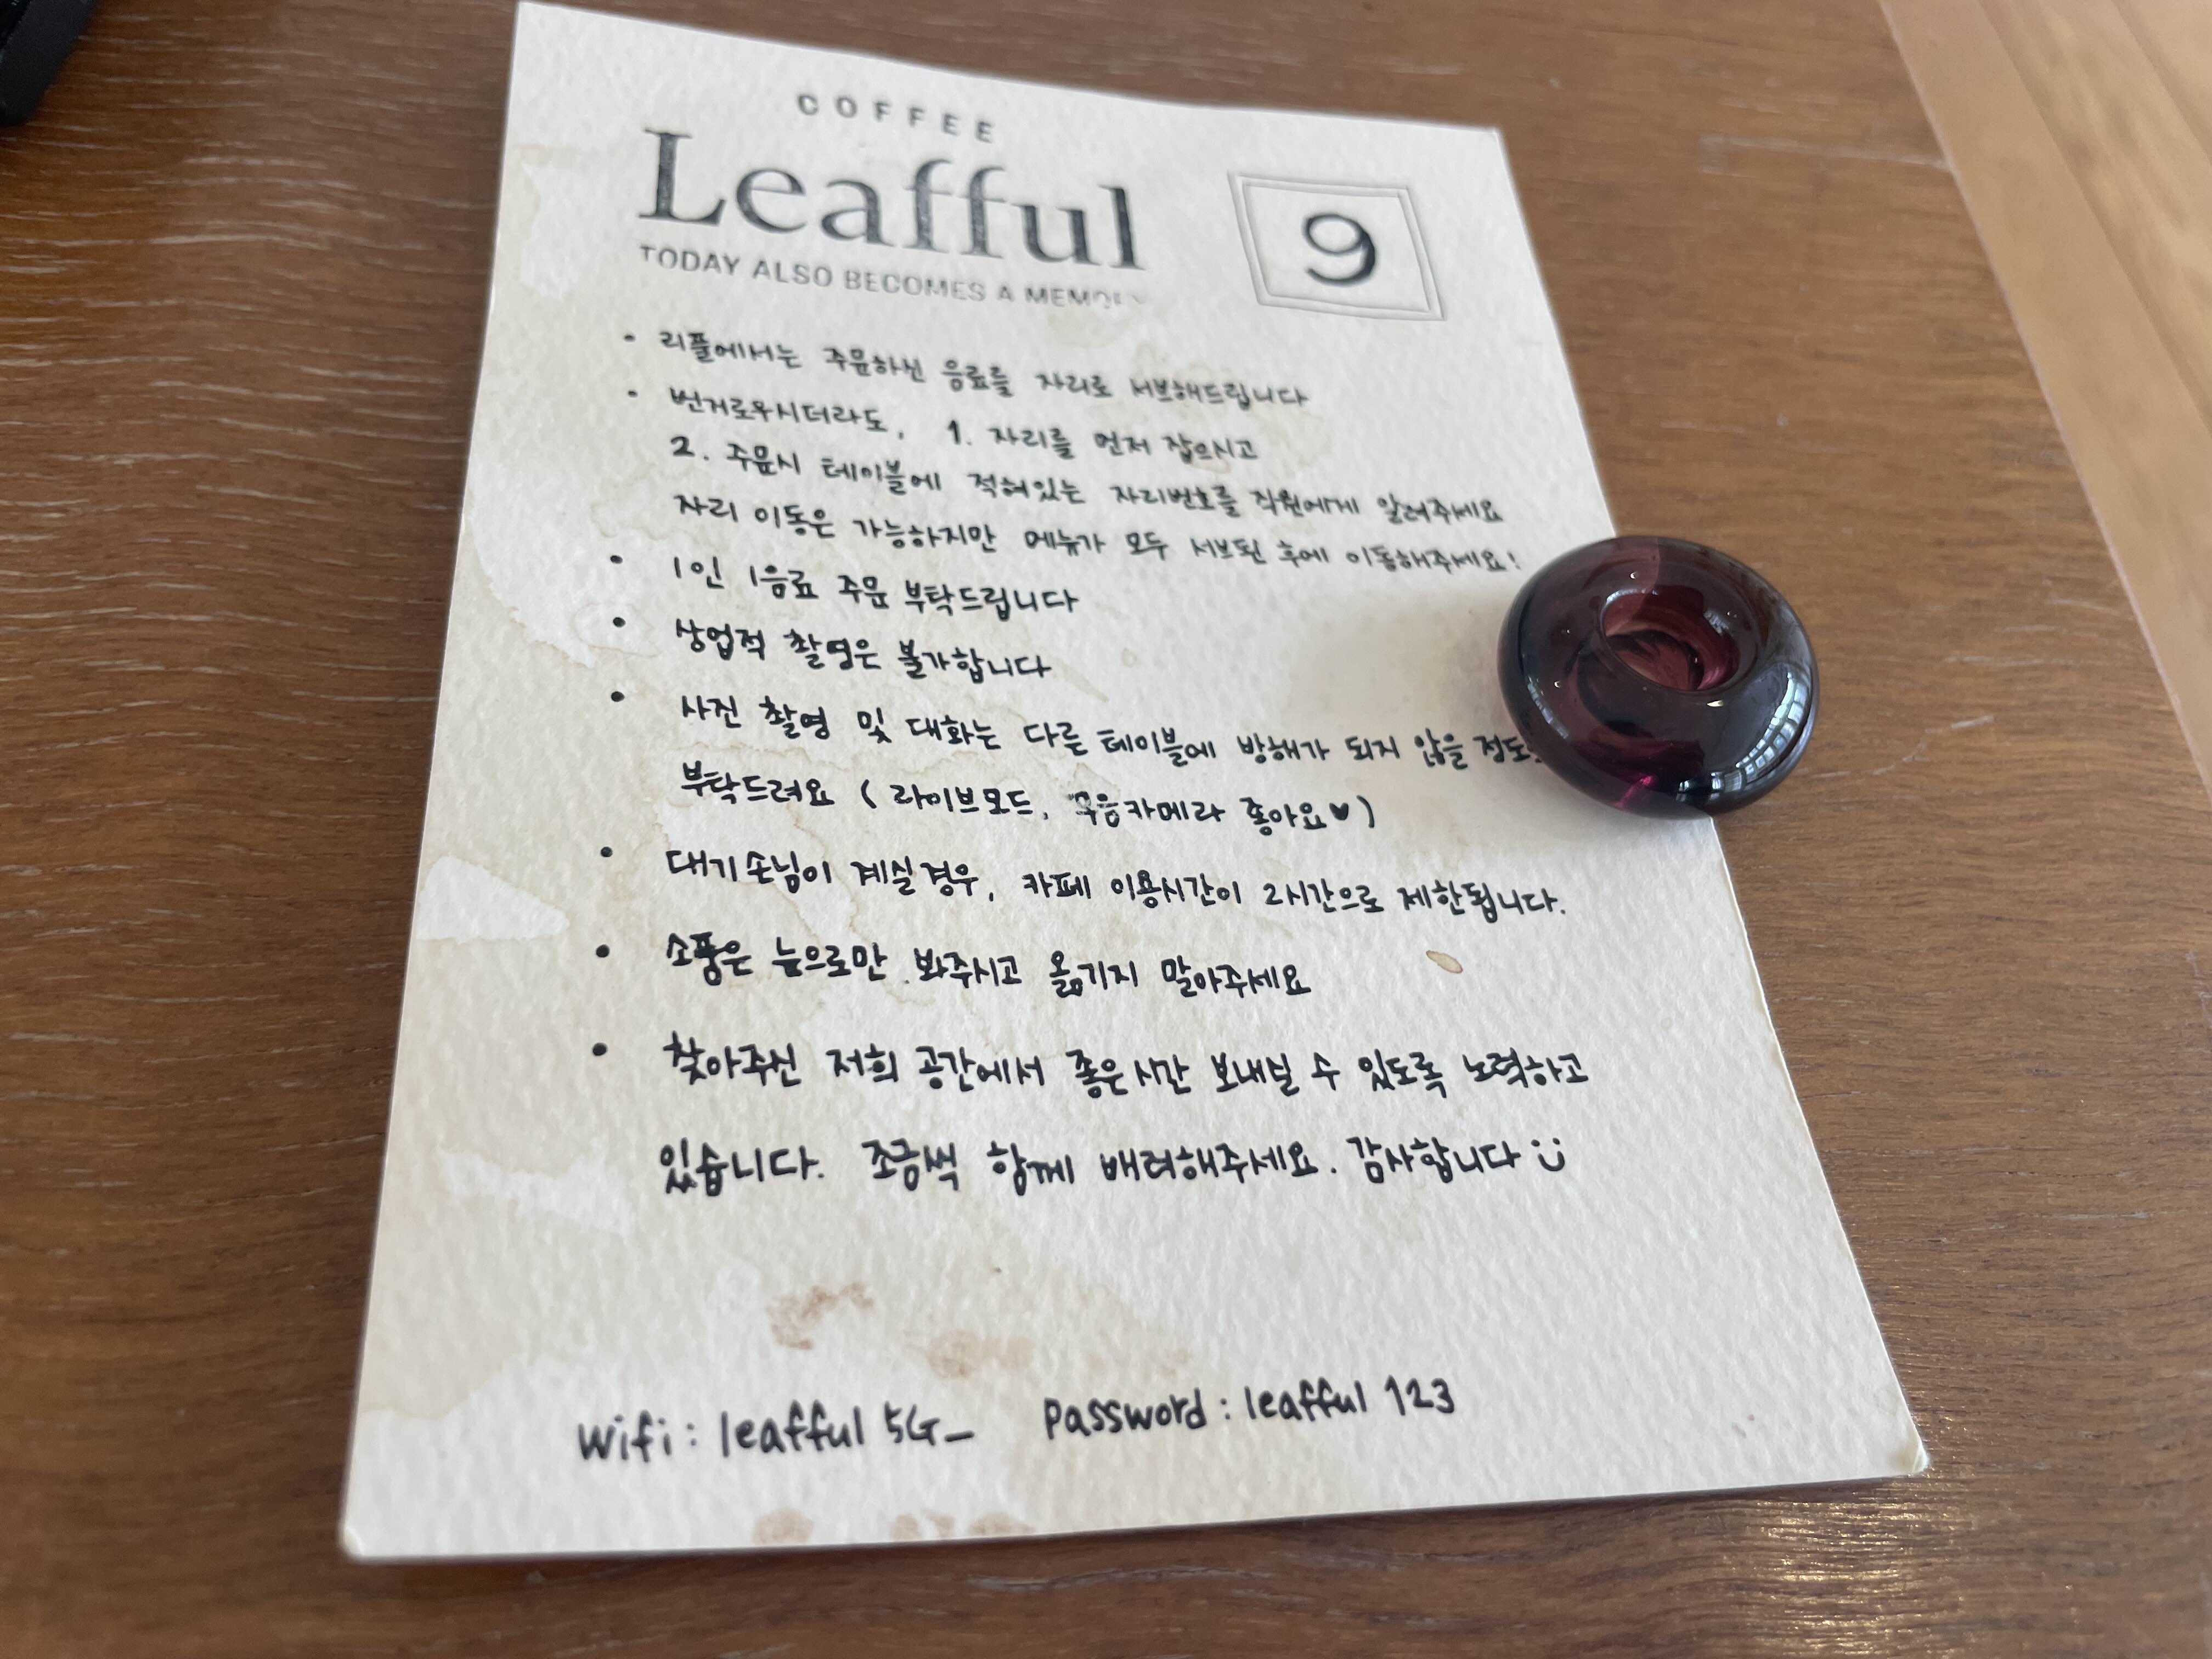 COFFEE
Leafful
TODAY ALSO BECOMES A MEMORY
9
• 리플에서는 주문하신 음료를 자리로 서브해드립니다
• 번거로우시더라도, 1. 자리를 먼저 잡으시고
2. 주문시 테이블에 적혀있는 자리번호를 직원에게 알려주세요
자리 이동은 가능하지만 메뉴가 모두 서브된 후에 이동해주세요!
• 1인 1음료 주문 부탁드립니다
• 상업적 촬영은 불가합니다
• 사진 촬영 및 대화는 다른 테이블에 방해가 되지 않을 정도
부탁드려요 ( 라이브모드, 무음카메라 좋아요♥)
• 대기손님이 계실경우, 카페 이용시간이 2시간으로 제한됩니다.
• 소품은 눈으로만 봐주시고 옮기지 말아주세요
• 찾아주신 저희 공간에서 좋은시간 보내실 수 있도록 노력하고
있습니다. 조금씩 함께 배려해주세요. 감사합니다 :)
Wifi : leafful 5G_ Password : leafful 123